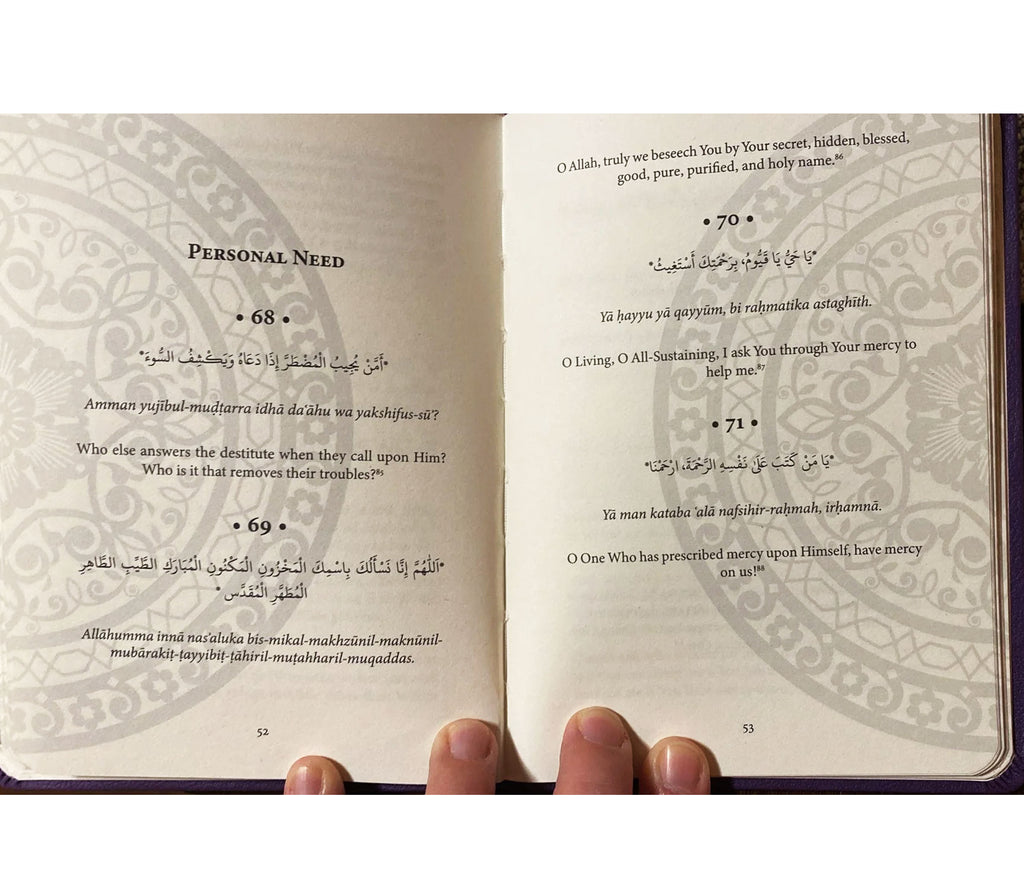 PERSONAL NEED
• 68 •
*أَمَّنْ يُجِيبُ الْمُضْطَرَّ إِذَا دَعَاهُ وَيَكْشِفُ السُّوءَ*
Amman yujībul-muḍtarra idhā daʿāhu wa yakshifus-sūʾ?
Who else answers the destitute when they call upon Him?
Who is it that removes their troubles?⁸⁵
• 69 •
*اَللّٰهُمَّ إِنَّا نَسْأَلُكَ بِاسْمِكَ الْمَخْزُونِ الْمَكْنُونِ الْمُبَارَكِ الطَّيِّبِ الطَّاهِرِ
الْمُطَهَّرِ الْمُقَدَّسِ*
Allāhumma innā nasʾaluka bis-mikal-makhzūnil-maknūnil-
mubārakiṭ-ṭayyibiṭ-ṭāhiril-muṭahharil-muqaddas.
52
O Allah, truly we beseech You by Your secret, hidden, blessed,
good, pure, purified, and holy name.⁸⁶
• 70 •
*يَا حَيُّ يَا قَيُّومُ، بِرَحْمَتِكَ أَسْتَغِيثُ*
Yā ḥayyu yā qayyūm, bi raḥmatika astaghīth.
O Living, O All-Sustaining, I ask You through Your mercy to
help me.⁸⁷
• 71 •
*يَا مَنْ كَتَبَ عَلَىٰ نَفْسِهِ الرَّحْمَةَ، ارْحَمْنَا*
Yā man kataba ʿalā nafsihir-raḥmah, irḥamnā.
O One Who has prescribed mercy upon Himself, have mercy
on us!⁸⁸
53